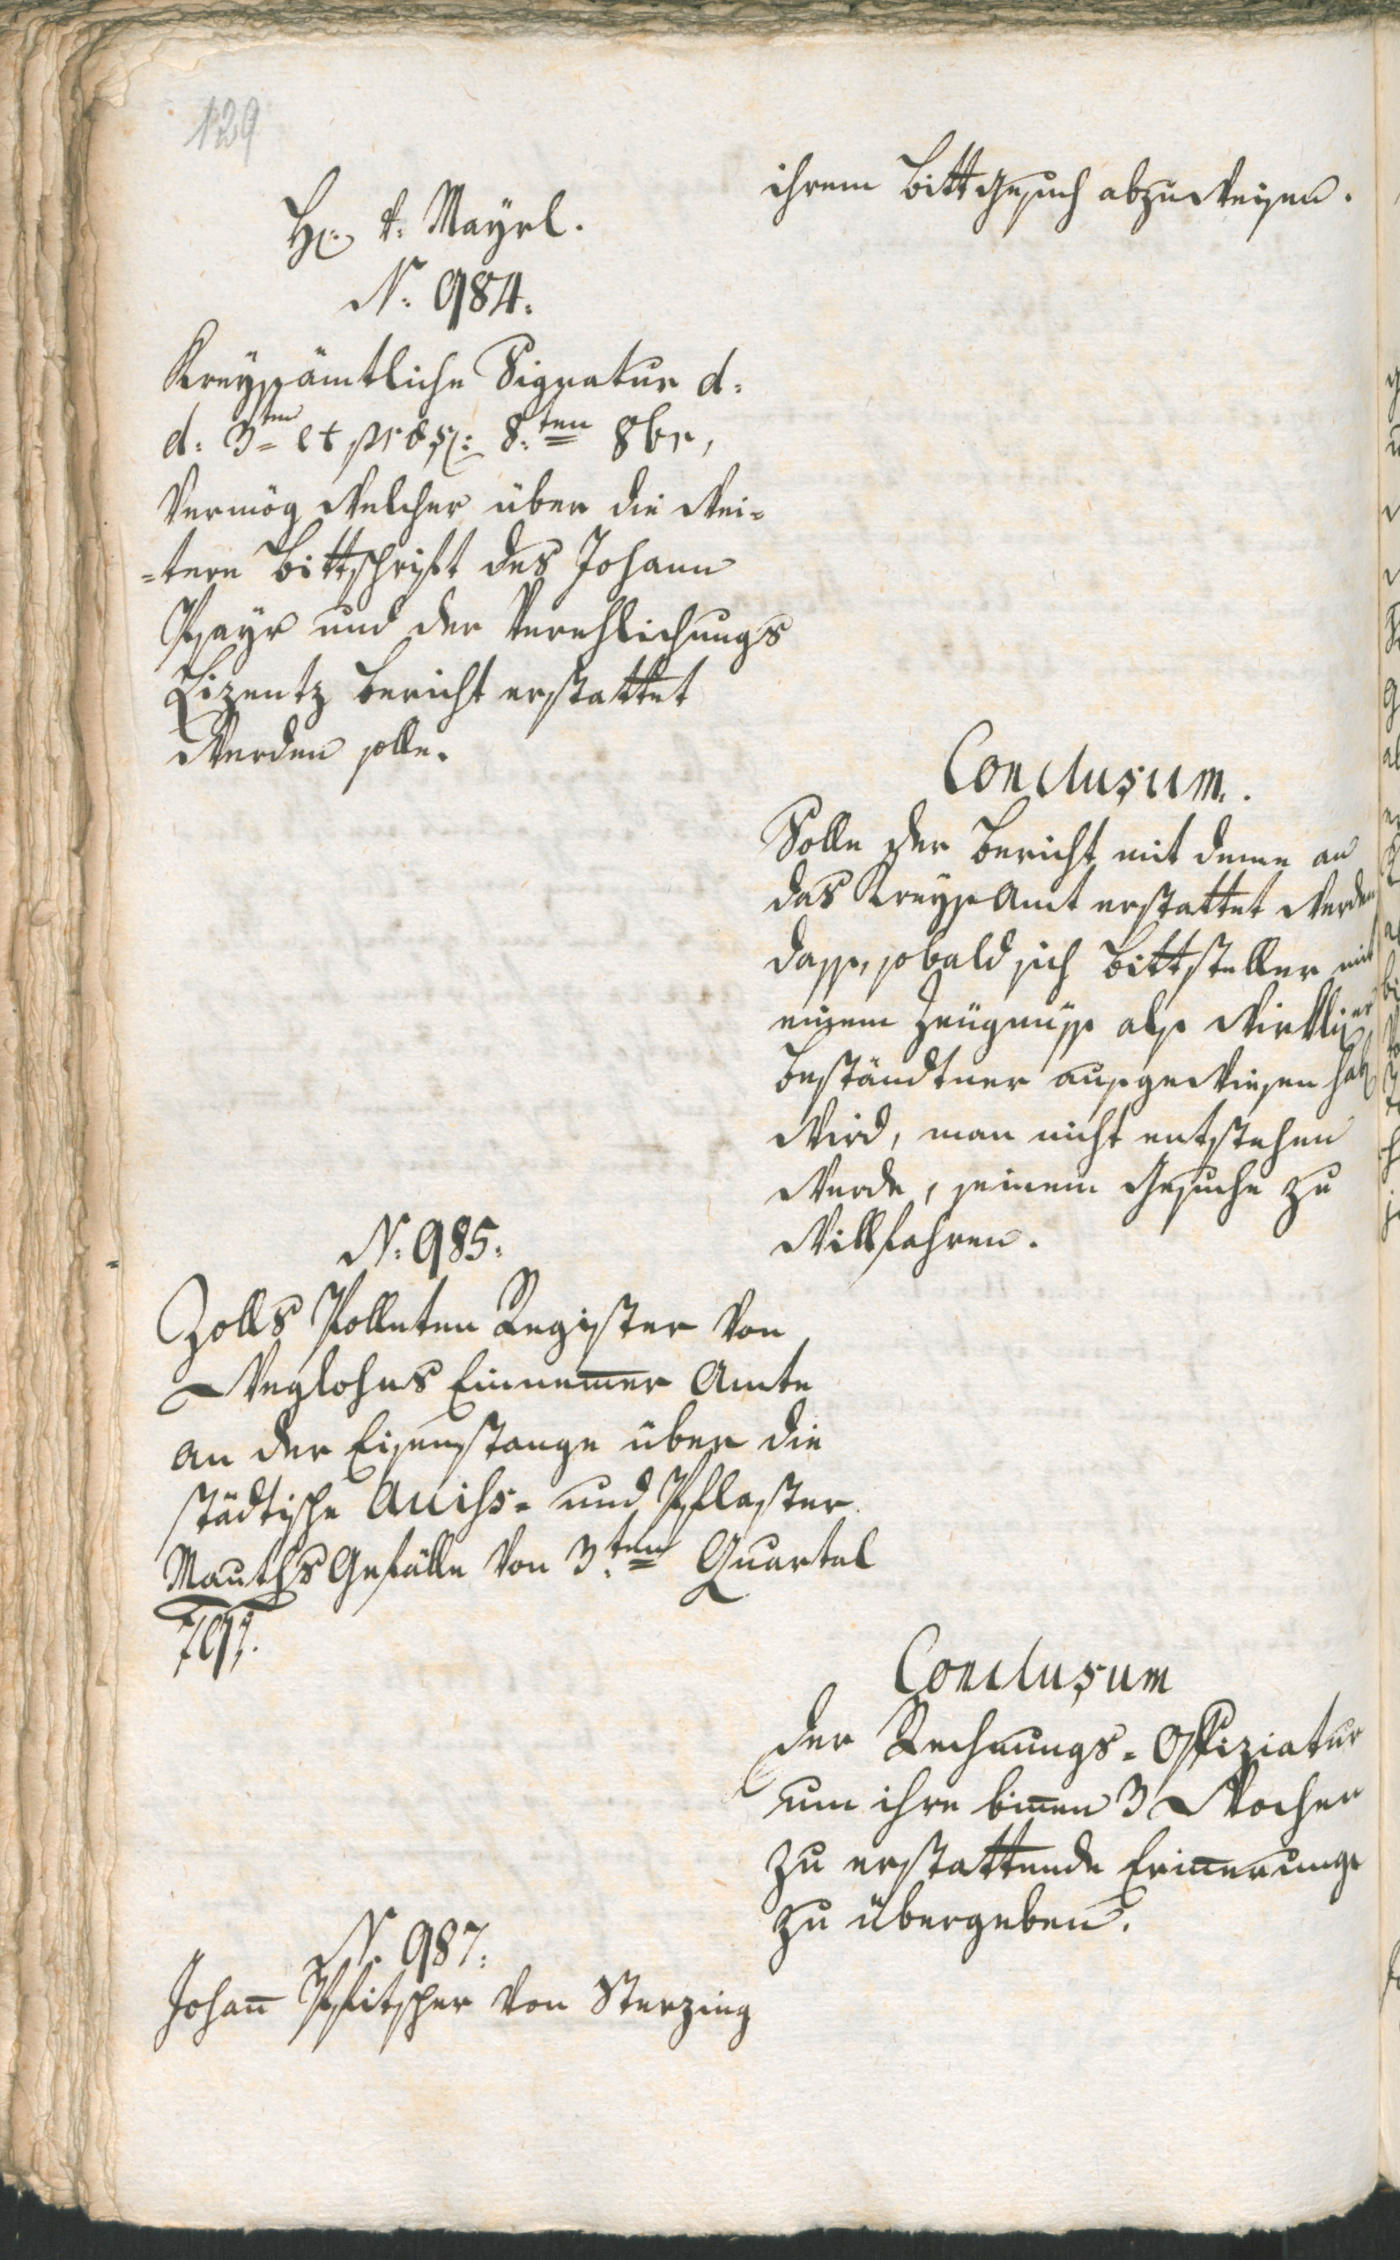 129
ihrem Bittgesuch abzuweisen.
H: v: Mayrl.
N: 984.
Kreysämtliche Signatur d:
d: 3ten et præs: 8:ten 8br,
vermög welcher über die wei=
=tere Bittschrift des Johann
Payr und der Verehlichungs
Lizentz Bericht erstattet
werden solle.
Conclusum.
Solle der Bericht mit deme an
das Kreysamt erstattet werden
dass, sobald sich Bittsteller mit
einem Zeugnüss als wirklicher
Beständtner ausgewiesen hab
wird, man nicht entstehen
werde, seinem Gesuche zu
willfahren.
N: 985.
Zolls Polleten Register von
Weglohns Einnem̄er Amte
an der Eisenstange über die
städtische Aufschl= und Pflaster
Mauths Gefälle von 3:ten Quartal
791.
Conclusum
Der Rechnungs=Offiziatur
um ihre bin̄en 3 Wochen
zu erstattende Erin̄erung
zu übergeben.
N. 987.
Johan̄ Pfitscher von Sterzing